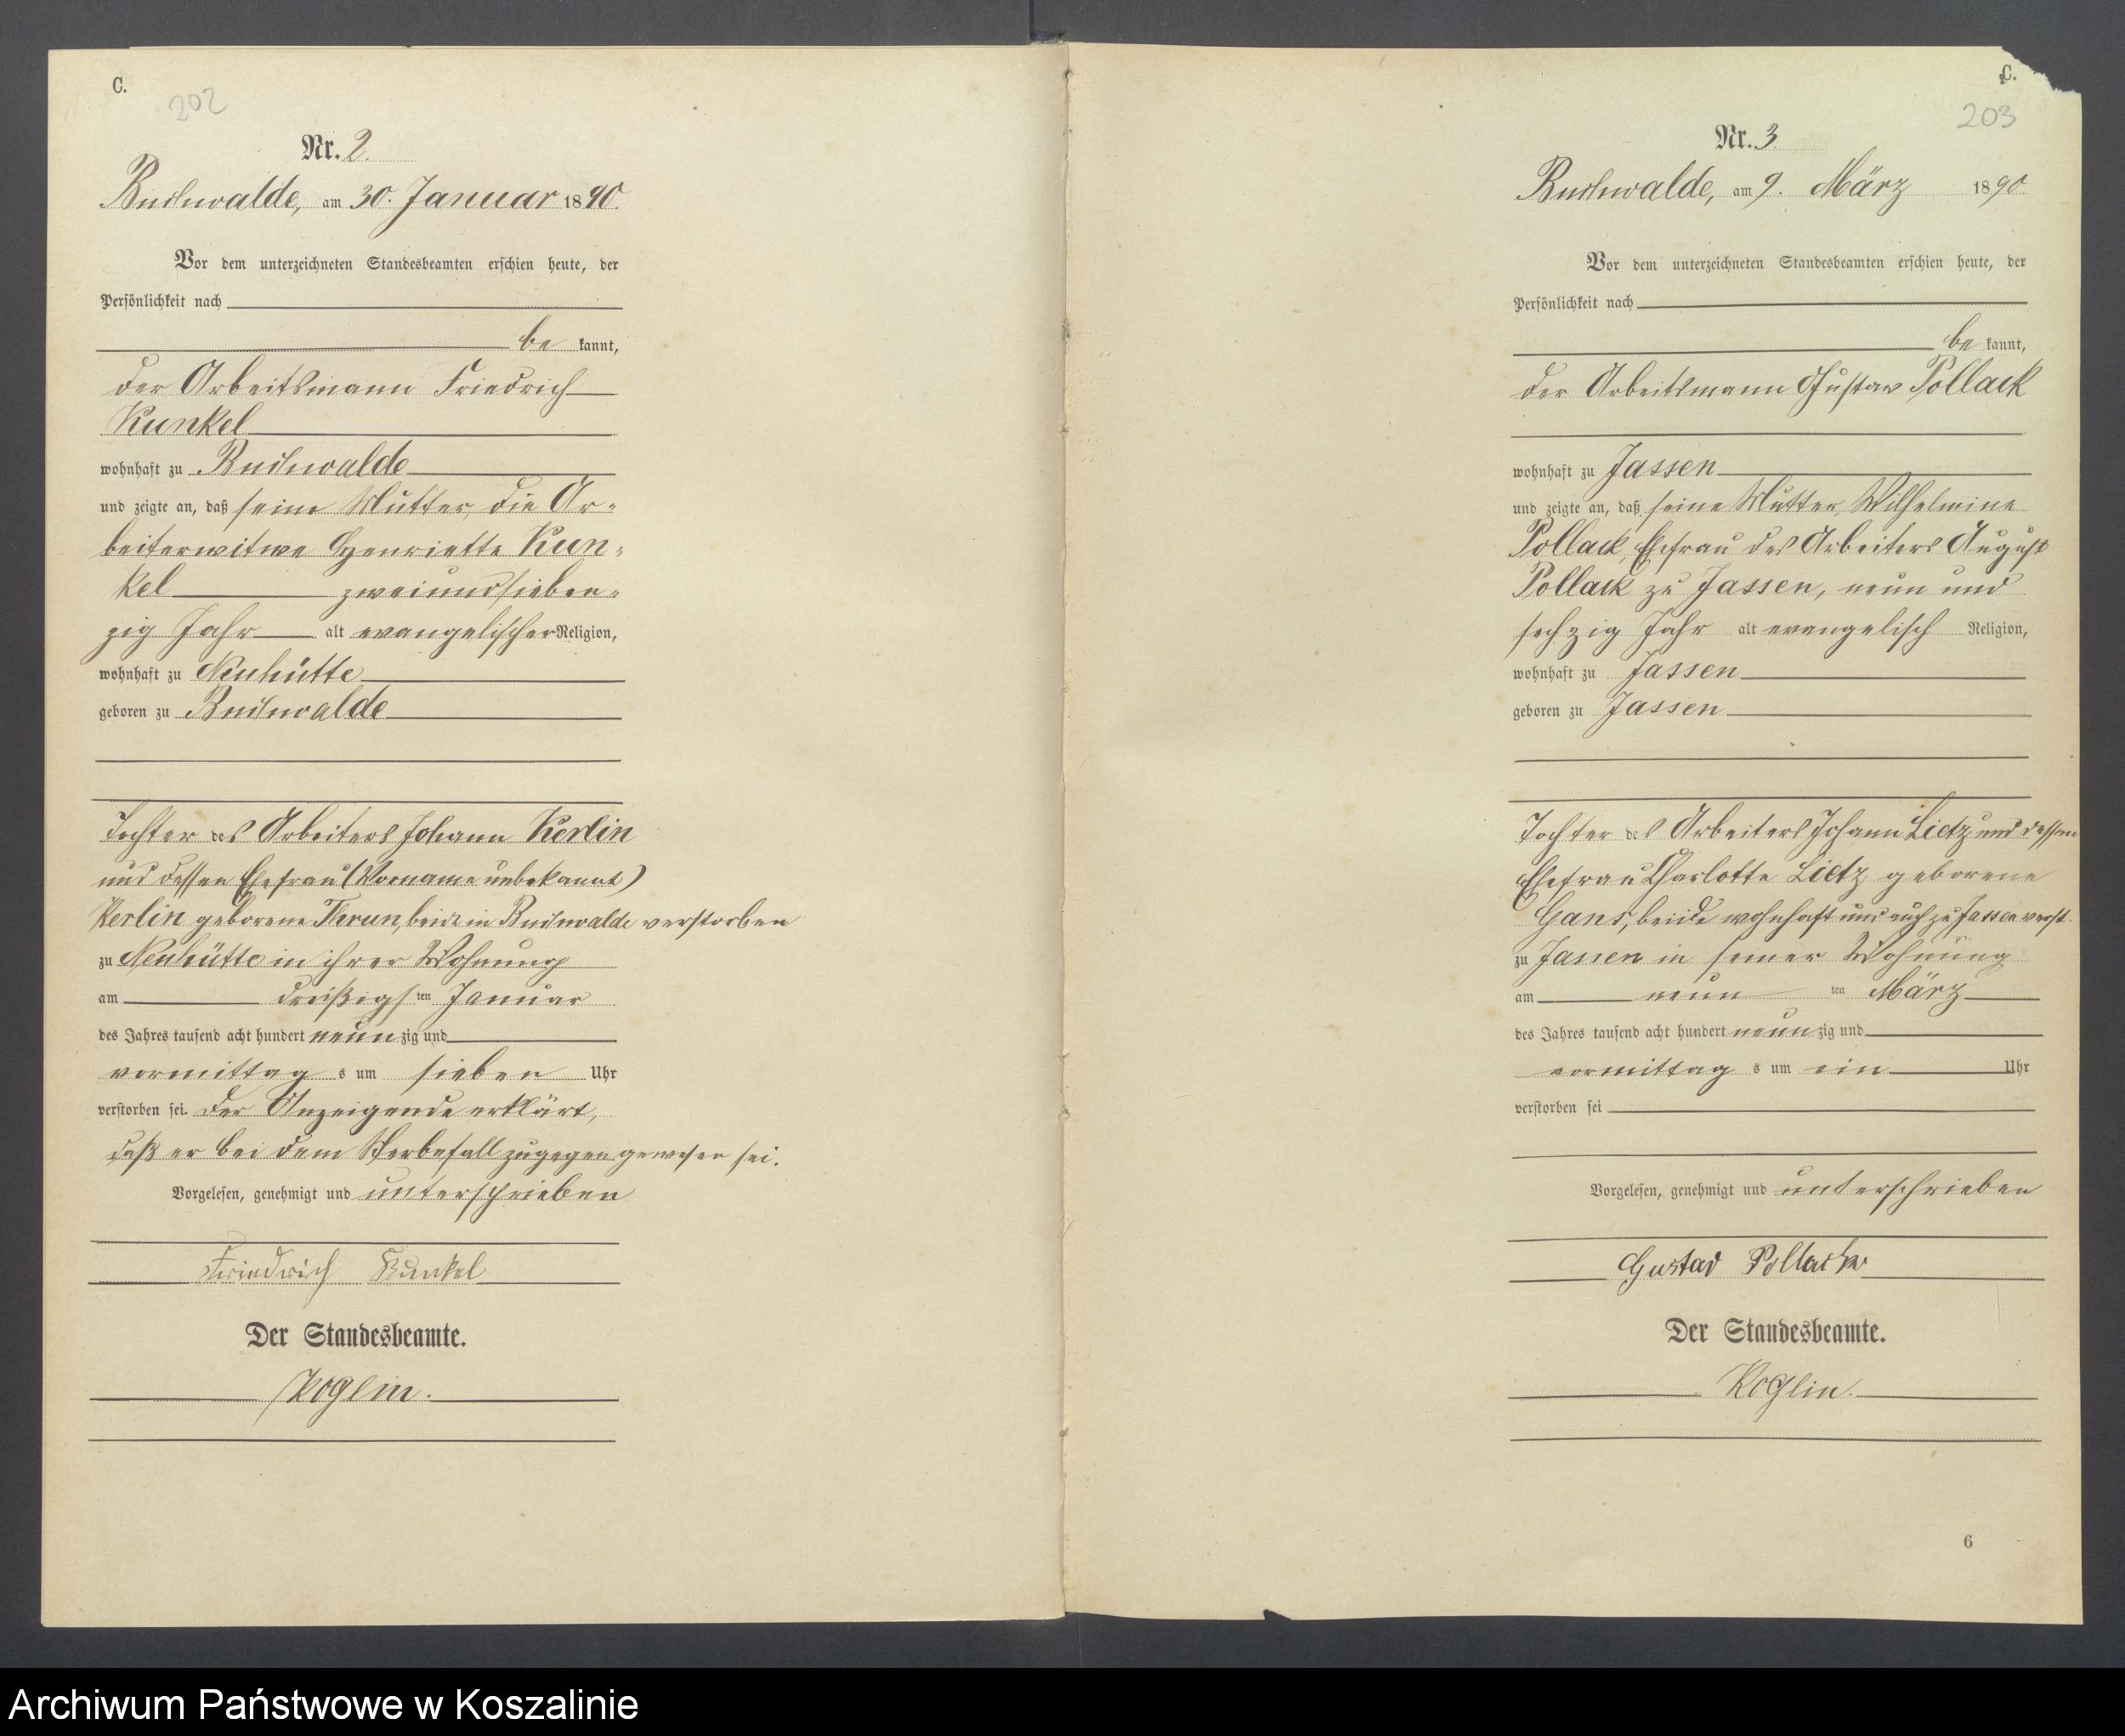 C.
202
Nr. 2.
Buchwalde, am 30. Januar 1890.
Vor dem unterzeichneten Standesbeamten erschien heute, der
Persönlichkeit nach
be kannt,
der Arbeitsmann Friedrich
Kunkel
wohnhaft zu Buchwalde
und zeigte an, daß seine Mutter, die Ar-
beiterwitwe Henriette Kun-
kel zweiundsieben-
zig Jahr alt evangelischer Religion,
wohnhaft zu Neuhütte
geboren zu Buchwalde
Tochter des Arbeiters Johann Kerlin
und dessen Ehefrau (Vorname unbekannt)
Kerlin geborene Thrun, beide in Buchwalde verstorben
zu Neuhütte in ihrer Wohnung
am dreißigsten Januar
des Jahres tausend acht hundert neunzig und
vormittags um sieben Uhr
verstorben sei. Der Anzeigende erklärt,
daß er bei dem Sterbefall zugegen gewesen sei.
Vorgelesen, genehmigt und unterschrieben
Friedrich Kunkel
Der Standesbeamte.
Koglin.
C.
203
Nr. 3
Buchwalde, am 9. März 1890
Vor dem unterzeichneten Standesbeamten erschien heute, der
Persönlichkeit nach
be kannt,
der Arbeitsmann Gustav Pollack
wohnhaft zu Jassen
und zeigte an, daß seine Mutter, Wilhelmine
Pollack, Ehefrau des Arbeiters August
Pollack zu Jassen, neun und
sechzig Jahr alt evangelisch Religion,
wohnhaft zu Jassen
geboren zu Jassen
Tochter des Arbeiters Johann Lietz und dessen
Ehefrau Charlotte Lietz geborene
Gans, beide wohnhaft und auch zu Jassen verst.
zu Jassen in seiner Wohnung
am neun ten März
des Jahres tausend acht hundert neunzig und
vormittags um ein Uhr
verstorben sei
Vorgelesen, genehmigt und unterschrieben
Gustav Pollack
Der Standesbeamte.
Koglin.
6
Archiwum Państwowe w Koszalinie